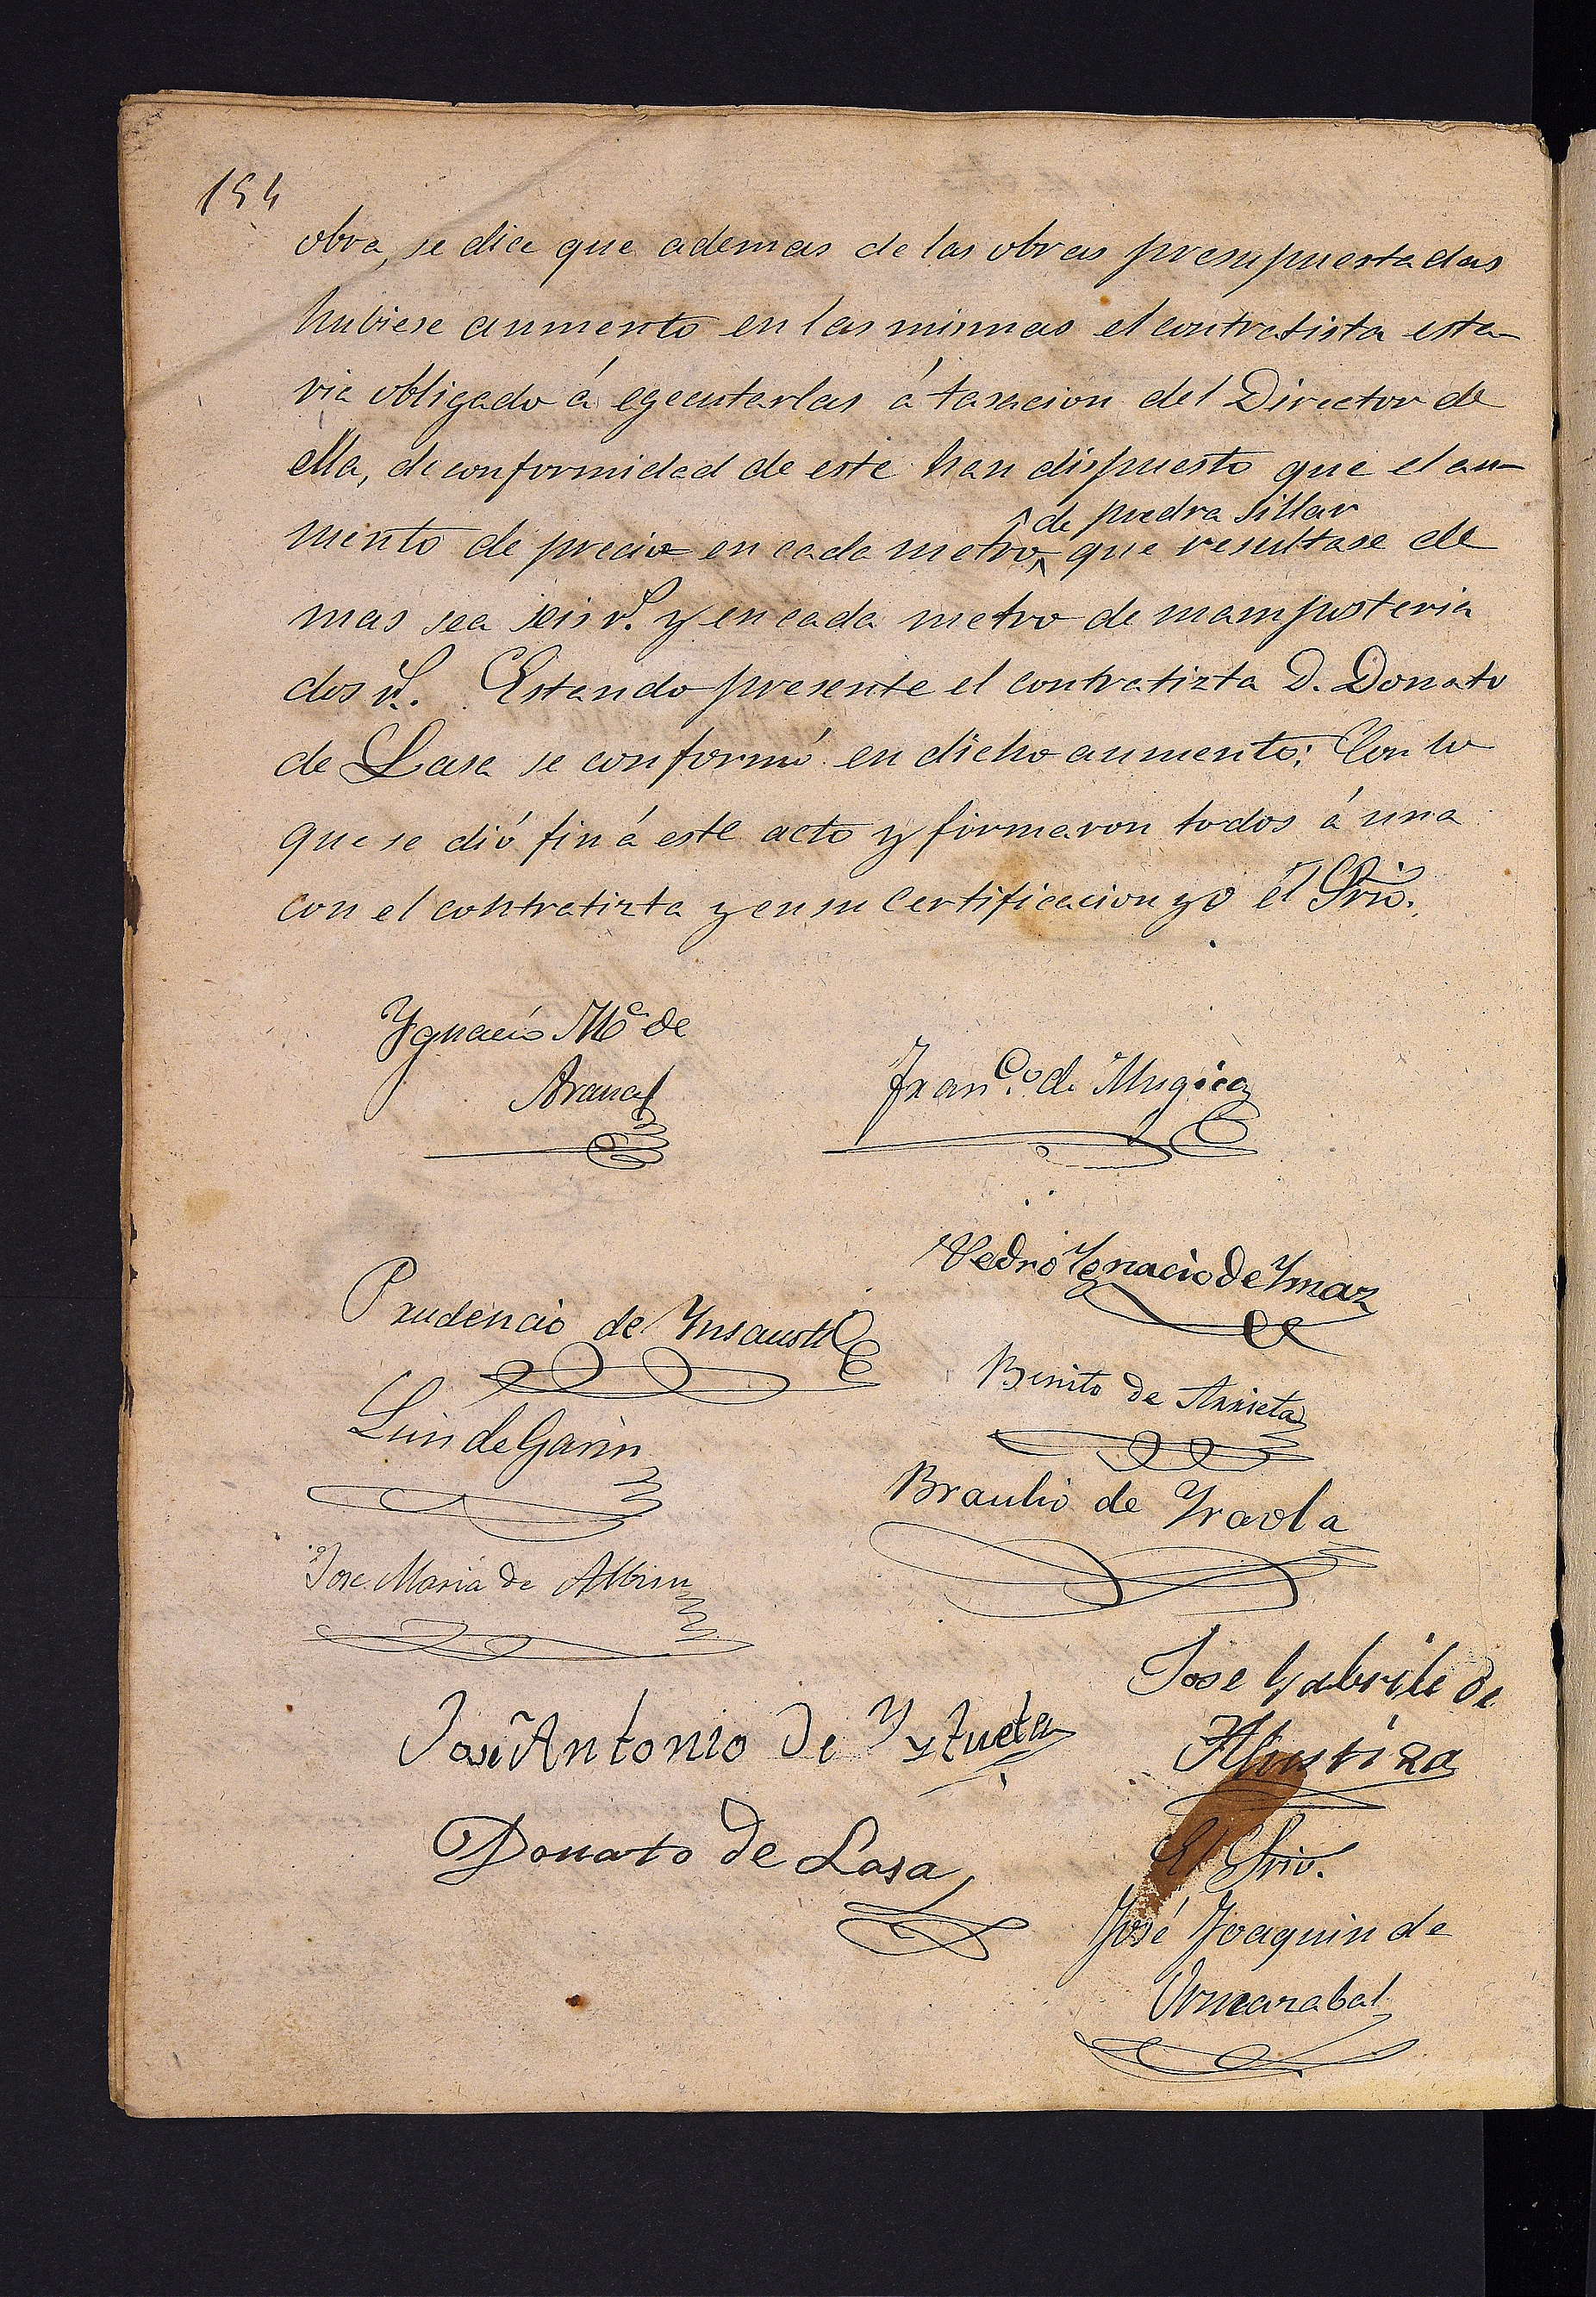 154
obra, se dice que ademas de las obras presupuestadas
hubiese aumento en las mismas el contratista esta-
ria obligado á egecutarlas á tasacion del Director de
ella, de conformidad de este han dispuesto que el au-
mento de precio en cada metro de piedra sillar que resultase de
mas sea seis r.^s y en cada metro de mamposteria
dos r.^s. Estando presente el contratizta D. Donato
de Lasa se conformó en dicho aumento: Con lo
que se dió fin á este acto y firmaron todos á una
con el contratizta y en su certificacion yo el Srio.
Ygnacio M.ª de
Arana
Fran.co de Mugica
Pedro Ygnacio de Ymaz
Prudencio de Ynsausti
Benito de Arrieta
Luis de Garin
Braulio de Yraola
Jose Maria de Albisu
Jose Gabriel de
Alustiza
José Antonio de Yztueta
Donato de Lasa
El Srio.
José Joaquin de
Ormazabal